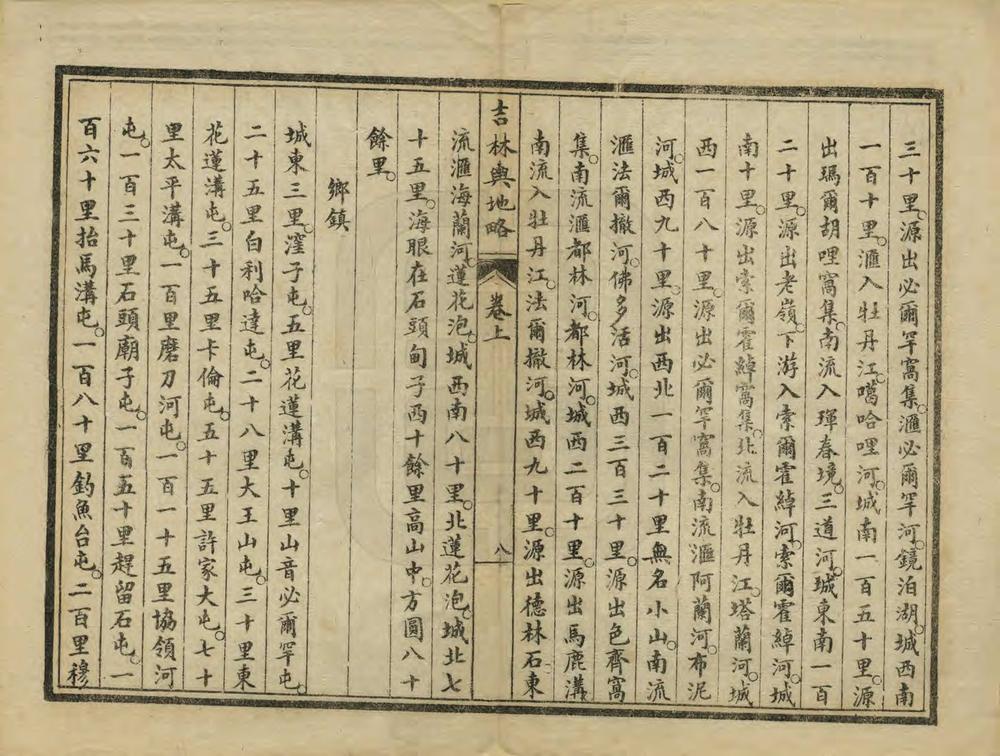 三十里。源出必爾罕窩集。滙必爾罕河。鏡泊湖。城西南
一百十里。滙入牡丹江。噶哈哩河。城南一百五十里。源
出瑪爾胡哩窩集。南流入琿春境。三道河。城東南一百
二十里。源出老嶺。下游入索爾霍綽河。索爾霍綽河。城
南十里。源出索爾霍綽窩集。北流入牡丹江。塔蘭河。城
西一百八十里。源出必爾罕窩集。南流滙阿蘭河。布泥
河。城西九十里。源出西北一百二十里無名小山。南流
滙法爾撤河。佛多活河。城西三百三十里。源出色齊窩
集。南流滙都林河。都林河。城西二百十里。源出馬鹿溝
南流入牡丹江。法爾撤河。城西九十里。源出德林石東
吉林輿地略 卷上 八
流滙海蘭河。蓮花泡。城西南八十里。北蓮花泡。城北七
十五里。海眼在石頭甸子西十餘里高山中。方圓八十
餘里。
鄉鎮
城東三里。窪子屯。五里花蓮溝屯。十里山音必爾罕屯。
二十五里白利哈達屯。二十八里大王山屯。三十里東
花蓮溝屯。三十五里卡倫屯。五十五里許家大屯。七十
里太平溝屯。一百里磨刀河屯。一百一十五里協領河
屯。一百三十里石頭廟子屯。一百五十里趕留石屯。一
百六十里抬馬溝屯。一百八十里釣魚台屯。二百里穆